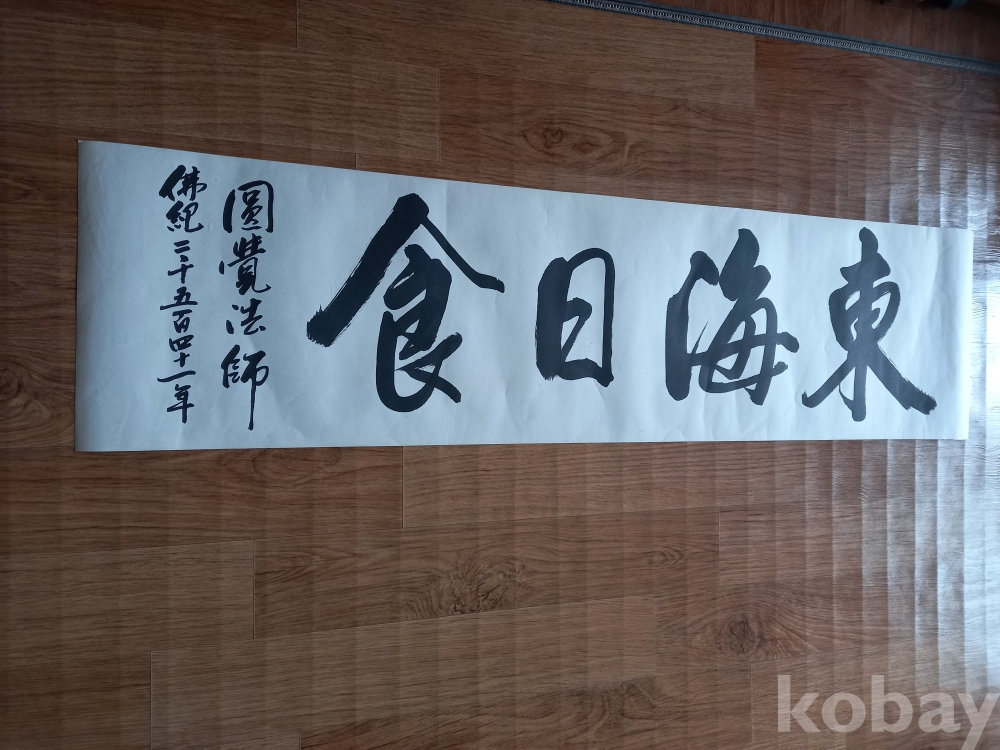 東海日食
圓覺法師
佛紀二千五百四十一年
kobay